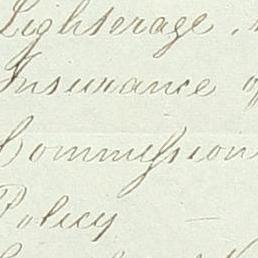 Lighterage
Insurance
Commission
Policy